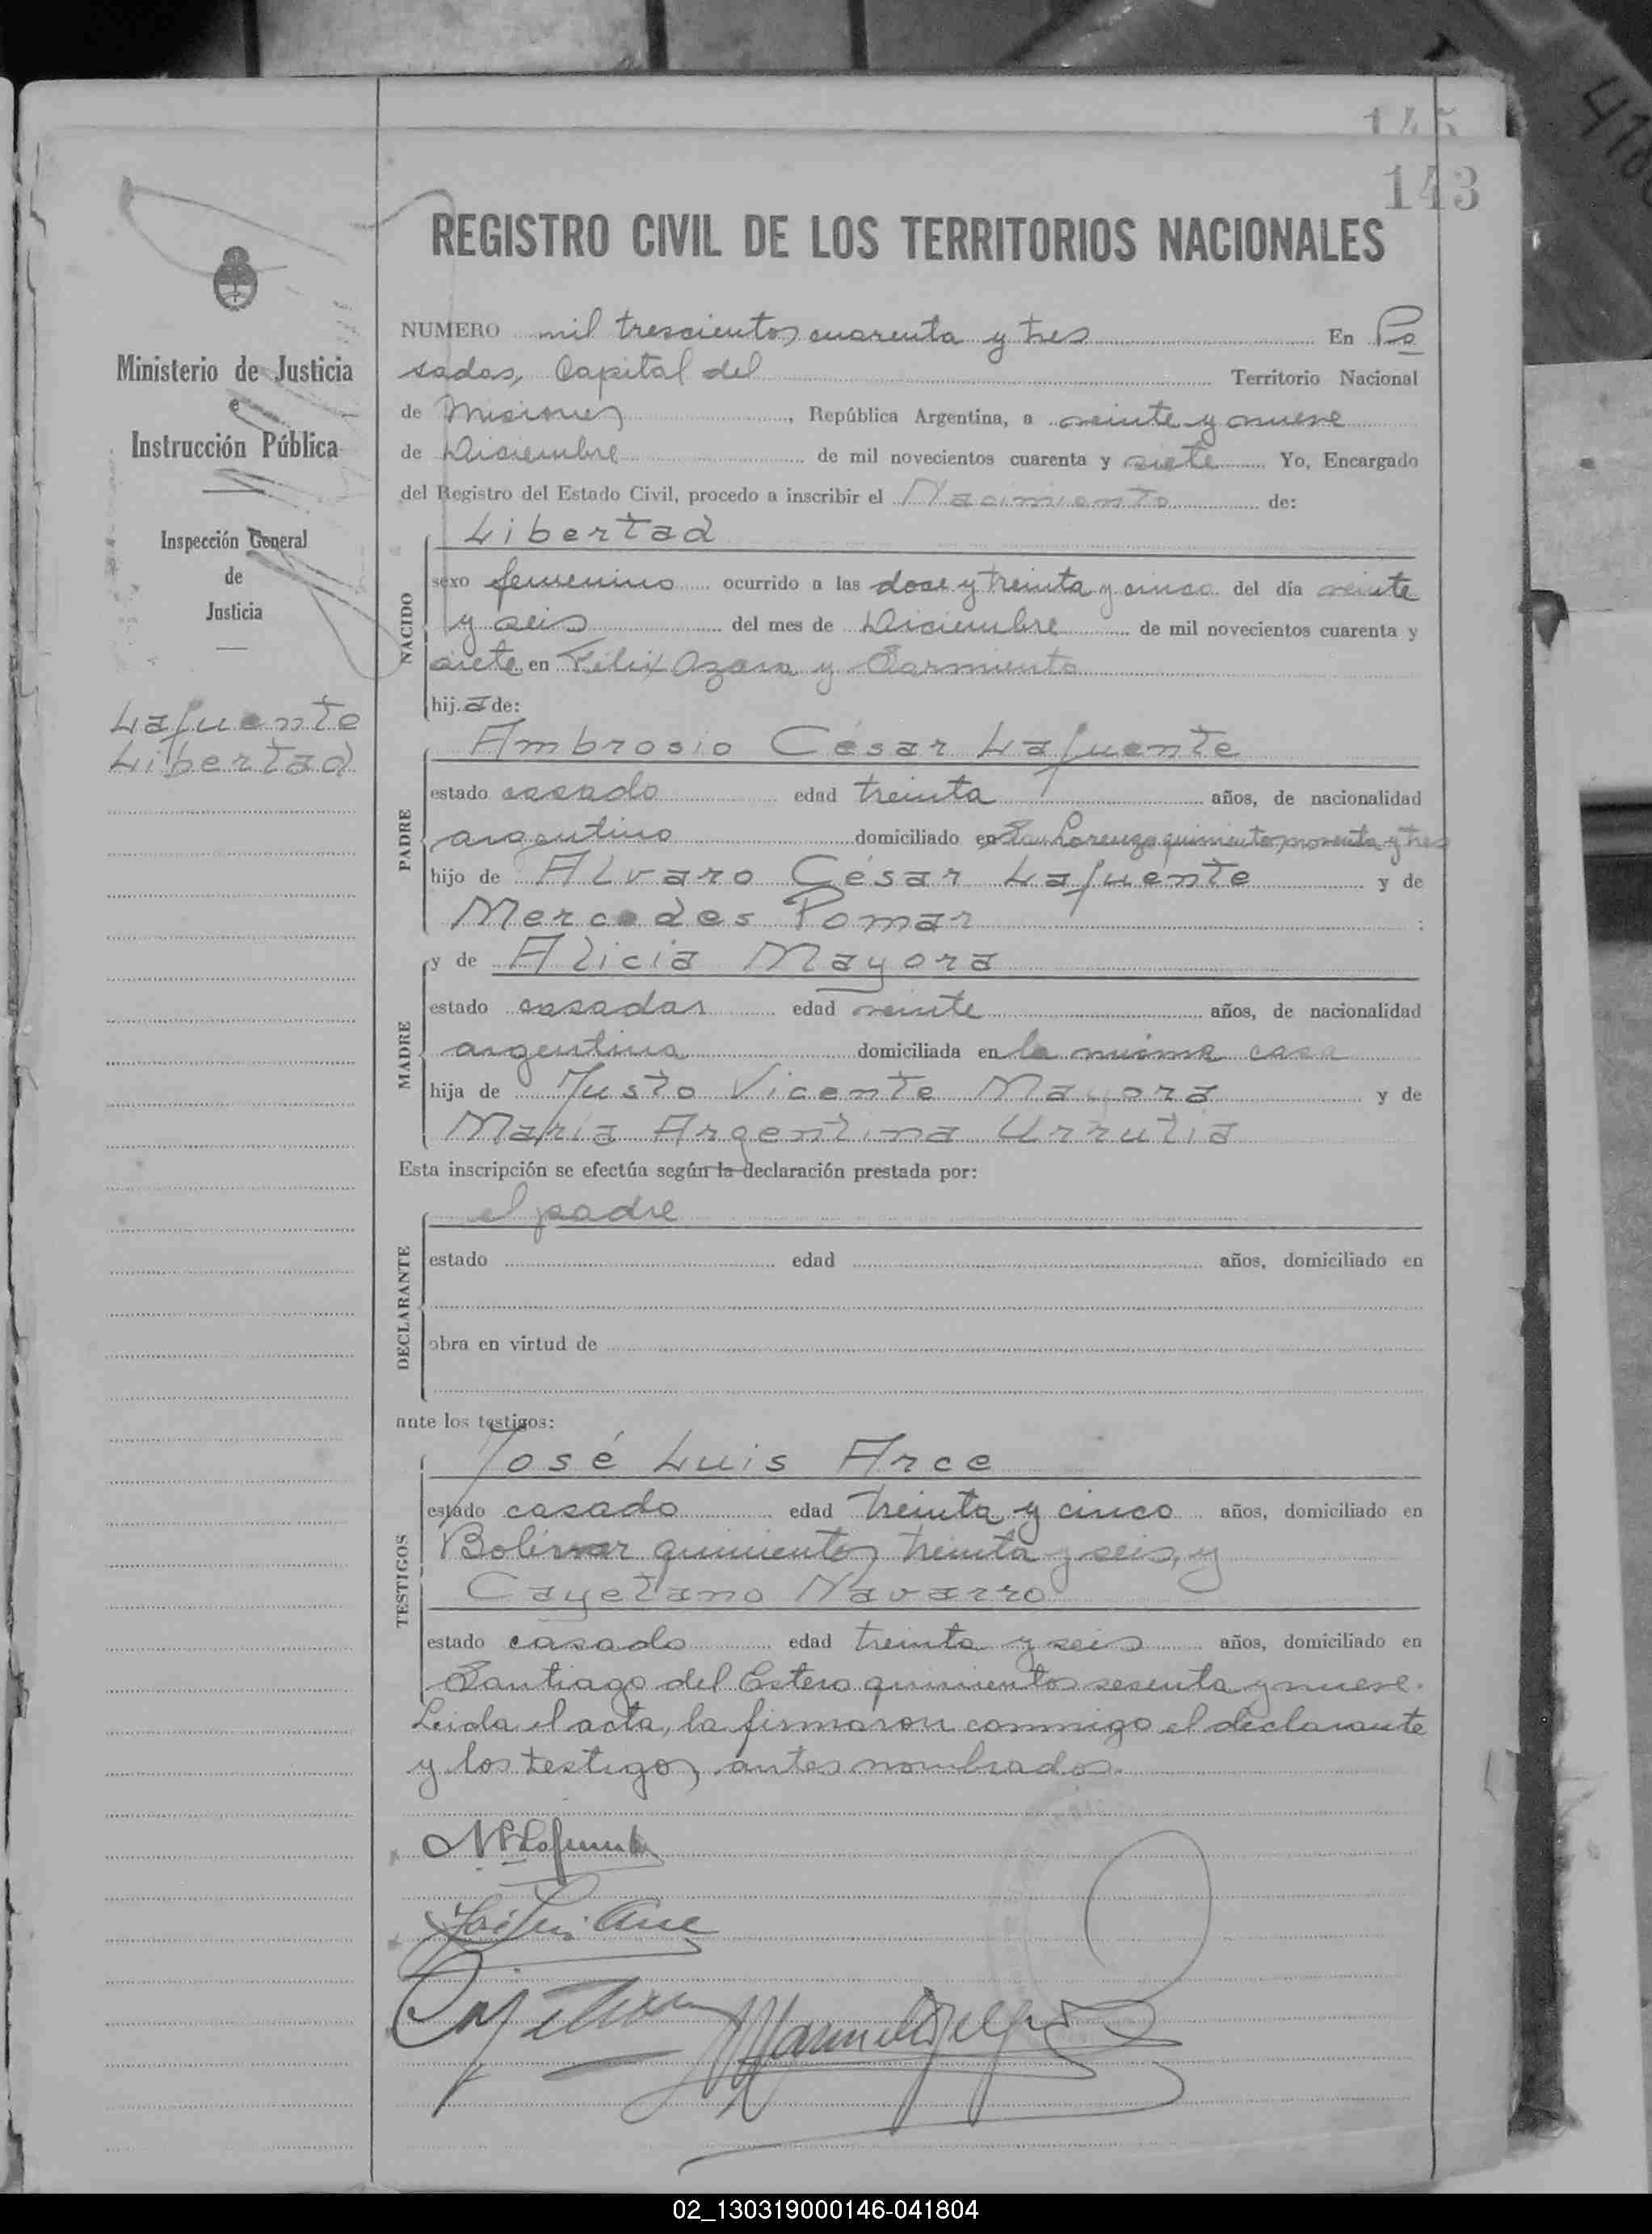 145
143
REGISTRO CIVIL DE LOS TERRITORIOS NACIONALES
Ministerio de Justicia
e
Instrucción Pública
Inspección General
de
Justicia
Lafuente
Libertad
NUMERO mil trescientos cuarenta y tres En Po
sadas, Capital del Territorio Nacional
de Misiones, República Argentina, a veinte y nueve
de Diciembre de mil novecientos cuarenta y siete Yo, Encargado
del Registro del Estado Civil, procedo a inscribir el Nacimiento de:
Libertad
NACIDO
sexo femenino ocurrido a las doce y treinta y cinco del día veinte
y seis del mes de Diciembre de mil novecientos cuarenta y
siete en Félix Azara y Sarmiento
hij.a de:
Ambrosio César Lafuente
PADRE
estado casado edad treinta años, de nacionalidad
argentino domiciliado en San Lorenzo quinientos noventa y tres
hijo de Alvaro César Lafuente y de
Mercedes Pomar :
y de Alicia Mayora
MADRE
estado casada edad veinte años, de nacionalidad
argentina domiciliada en la misma casa
hija de Justo Vicente Mayora y de
María Argentina Urrutia
Esta inscripción se efectúa según la declaración prestada por:
el padre
DECLARANTE
estado edad años, domiciliado en
obra en virtud de
ante los testigos:
José Luis Arce
TESTIGOS
estado casado edad treinta y cinco años, domiciliado en
Bolívar quinientos treinta y seis, y
Cayetano Navarro
estado casado edad treinta y seis años, domiciliado en
Santiago del Estero quinientos sesenta y nueve.
Leida el acta, la firmaron conmigo el declarante
y los testigos antes nombrados.
02_130319000146-041804